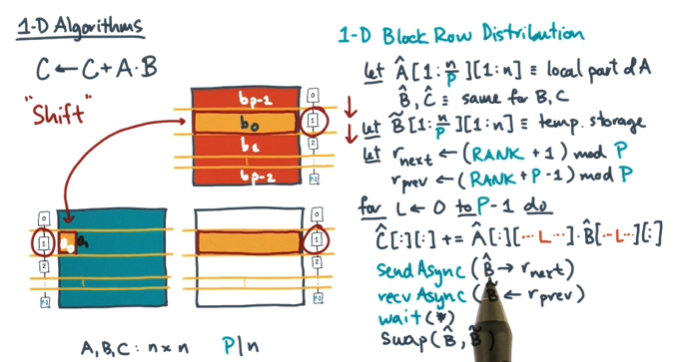 1-D Algorithms
C ← C + A · B
"Shift"
b_{p-2}
b_0
b_1
b_{p-2}
0
1
2
P-1
0
1
2
P-1
a_0
a_1
0
1
2
P-1
A, B, C : n × n P|n
1-D Block Row Distribution
let Â[1:n/P][1:n] ≡ local part of A
B̂, Ĉ ≡ same for B, C
let B̃[1:n/P][1:n] ≡ temp. storage
let r_next ← (RANK + 1) mod P
r_prev ← (RANK + P - 1) mod P
for L ← 0 to P-1 do
Ĉ[:][:] += Â[:][···L···] · B̂[···L···][:]
sendAsync (B̂ → r_next)
recvAsync (B̃ ← r_prev)
wait(*)
swap(B̂, B̃)